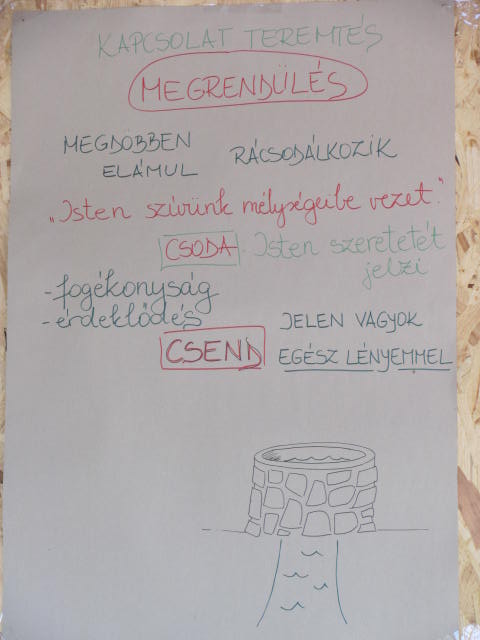 KAPCSOLAT TEREMTÉS
MEGRENDÜLÉS
MEGDÖBBEN
ELÁMUL
RÁCSODÁLKOZIK
„Isten szívünk mélységeibe vezet."
CSODA - Isten szeretetét
jelzi
- fogékonyság
- érdeklődés
JELEN VAGYOK
CSEND
EGÉSZ LÉNYEMMEL